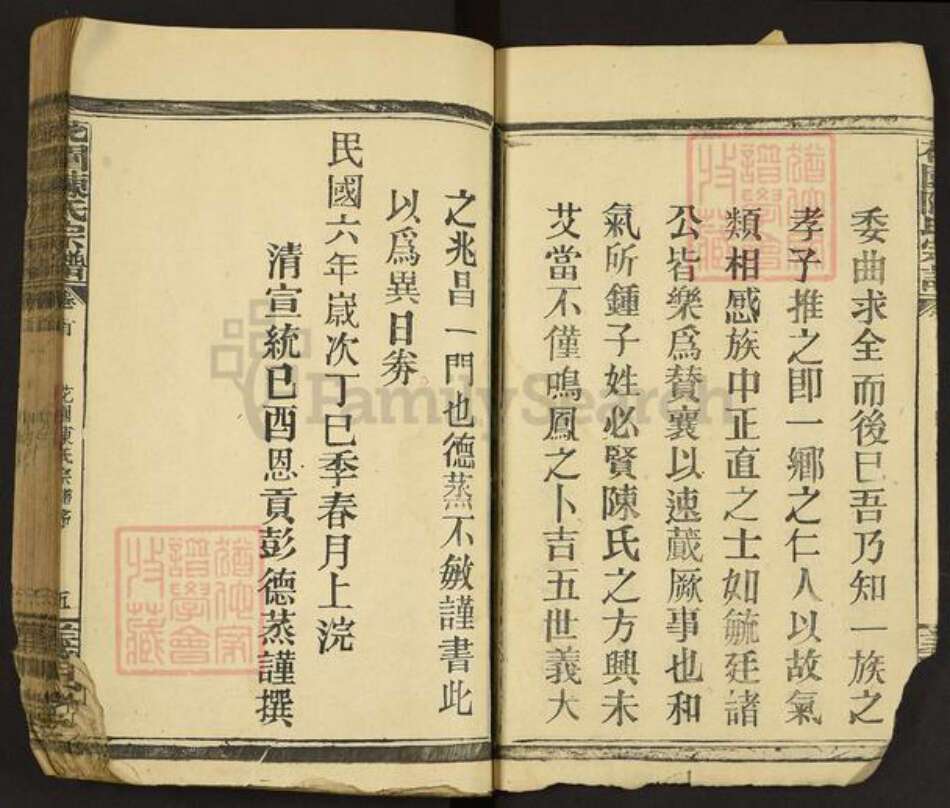 委曲求全而後已吾乃知一族之
孝子推之即一鄉之仁人以故氣
類相感族中正直之士如毓廷諸
公皆樂爲贊襄以速蕆厥事也和
氣所鍾子姓必賢陳氏之方興未
艾當不僅鳴鳳之卜吉五世義大
之兆昌一門也德蒸不敏謹書此
以爲異日券
民國六年嵗次丁巳季春月上浣
清宣統己酉恩貢彭德蒸謹撰
花園陳氏宗譜
卷首
花園陳氏宗譜序
五
FamilySearch
譜學會
收藏